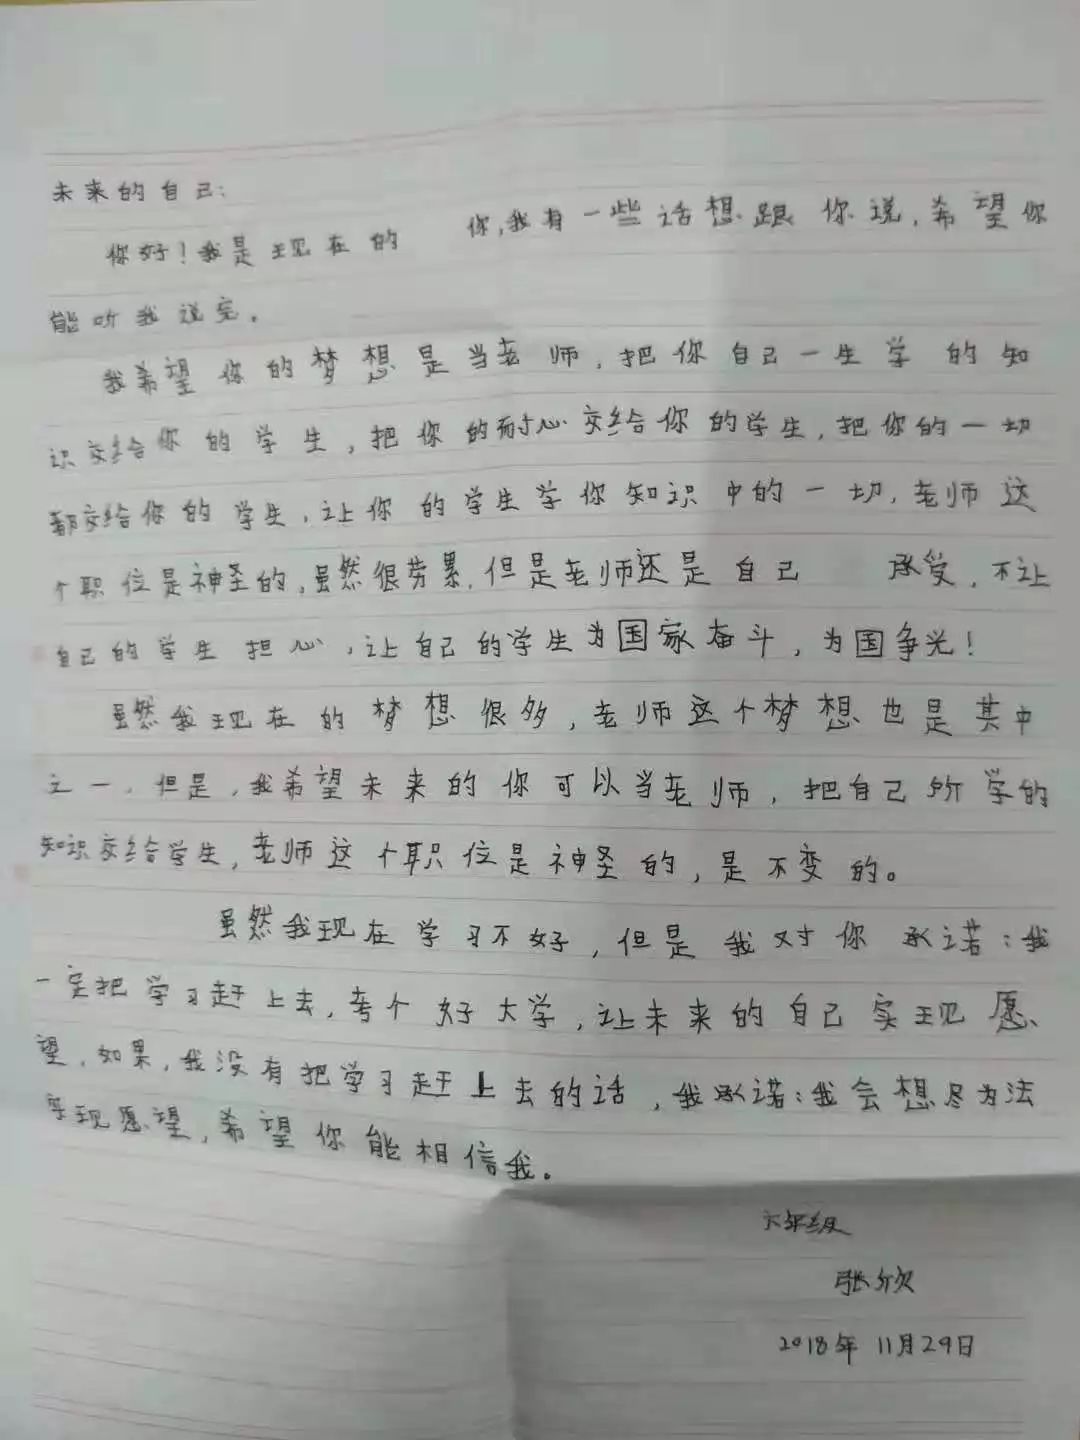 未来的自己：
你好！我是现在的 你，我有一些话想跟你说，希望你
能听我说完。
我希望你的梦想是当老师，把你自己一生学的知
识交给你的学生，把你的耐心交给你的学生，把你的一切
都交给你的学生，让你的学生学你知识中的一切，老师这
个职位是神圣的，虽然很劳累，但是老师还是自己 承受，不让
自己的学生担心，让自己的学生为国家奋斗，为国争光！
虽然我现在的梦想很多，老师这个梦想也是其中
之一，但是，我希望未来的你可以当老师，把自己所学的
知识交给学生，老师这个职位是神圣的，是不变的。
虽然我现在学习不好，但是我对你承诺：我
一定把学习赶上去，考个好大学，让未来的自己实现愿
望，如果，我没有把学习赶上去的话，我承诺：我会想尽为法
实现愿望，希望你能相信我。
六年级
张欣
2018年11月29日